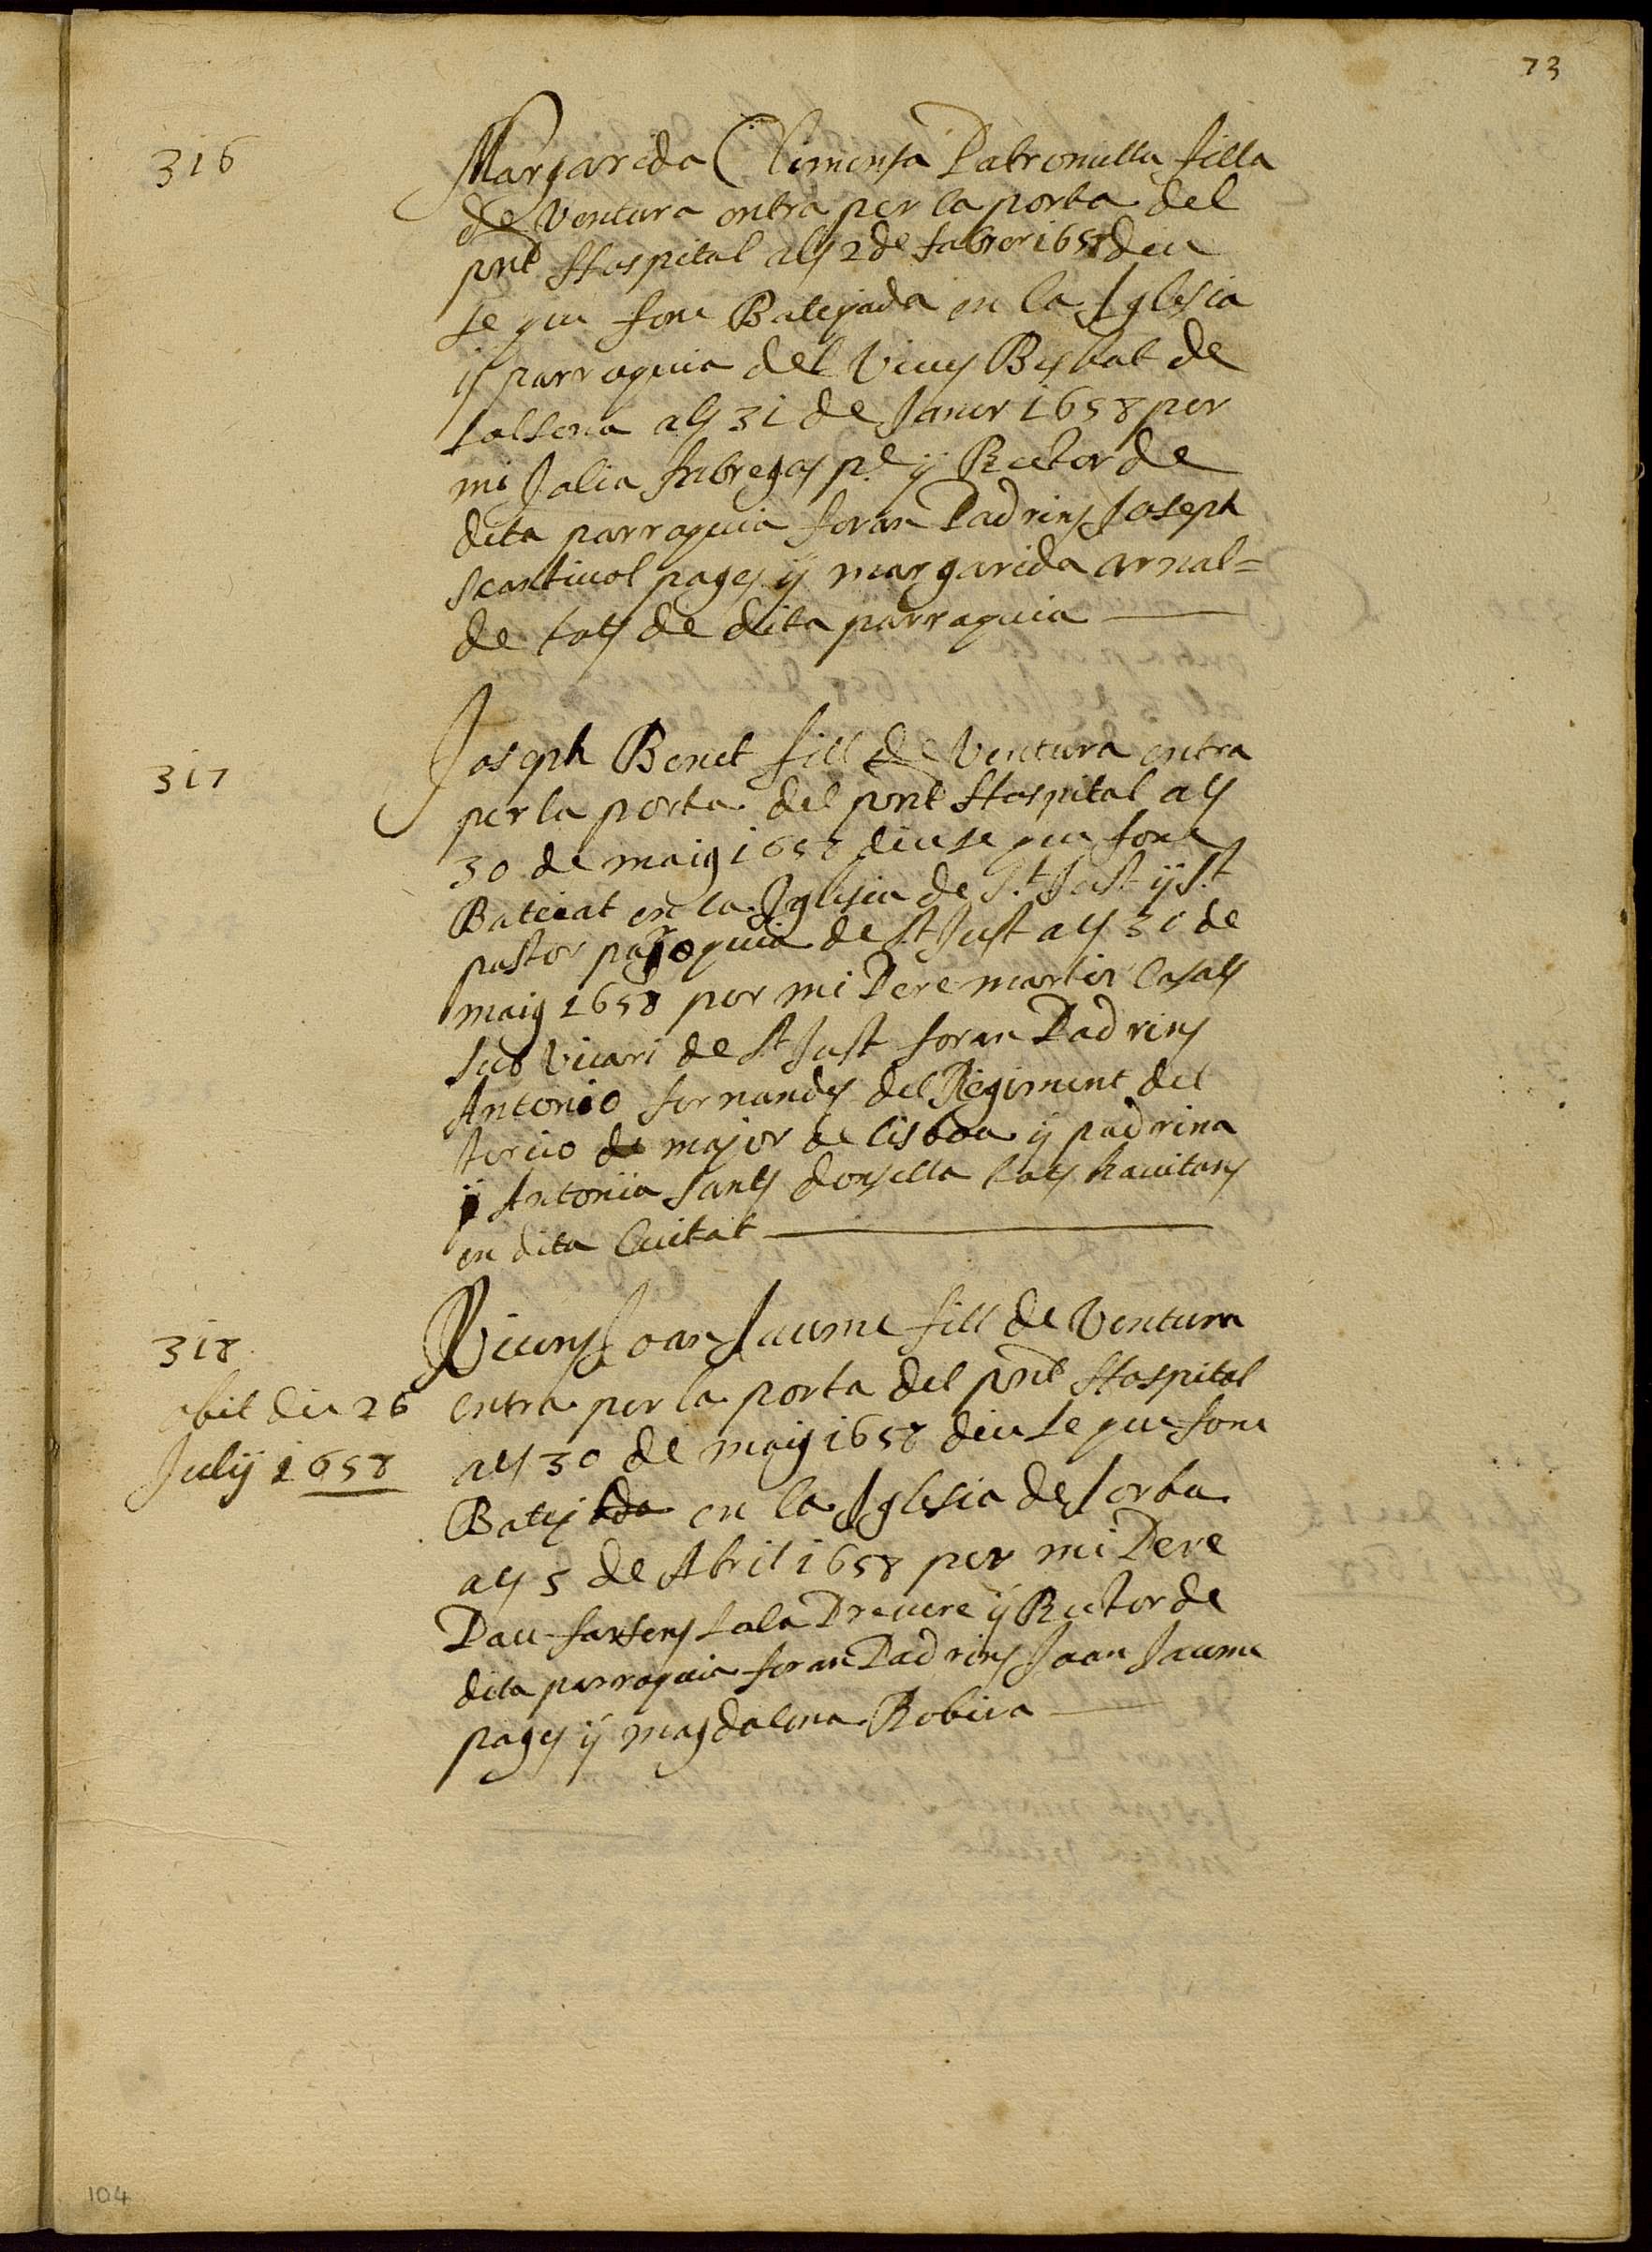 73
316
Margarida Climensa Patronilla filla
de Ventura entra per la porta del
pnt Hospital als 2 de fabrer 1658 diu
se que fonc Batejada en la Iglesia
y parroquia del Vives Bisbat de
Solsona als 31 de Janer 1658 per
mi Jalia Fabregas pe. y Rector de
dita parroquia foran Padrins Joseph
scantivol pages y margarida arnal=
de tots de dita parroquia
317
Joseph Benet fill de Ventura entra
per la porta del pnt Hospital als
30 de maig 1658 diu se que fonc
Bateiat en la Iglesia de St. Just y St.
pastor parroquia de St Just als 31 de
maig 1658 per mi Pere martir Casals
sub vicari de St Just foran Padrins
Antonio fernandes del Regiment del
tercio de major de lisboa y padrina
y Antonia Sants donsella tots havitans
en dita Ciutat
318
obit die 26
Julij 1658
Vicens Joan Jaume fill de Ventura
entra per la porta del pnt Hospital
als 30 de maig 1658 diu se que fonc
Batejada en la Iglesia de Jorba
als 5 de Abril 1658 per mi Pere
Pau Sala Prevere y Rector de
dita parroquia foran Padrins Joan Jaume
pages y magdalena Robira
104